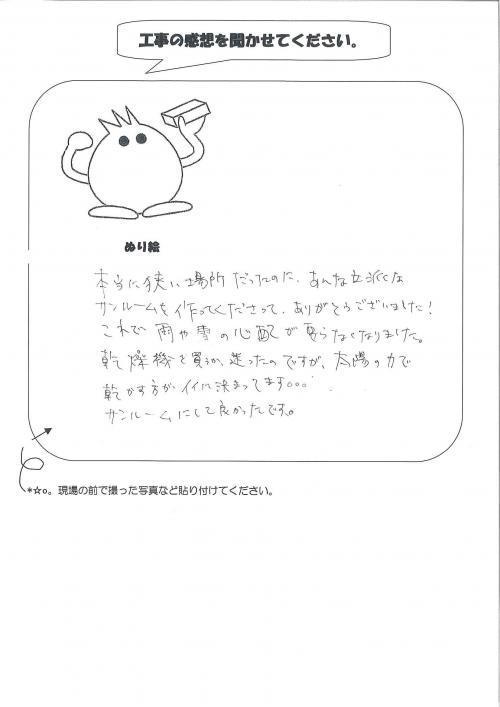 工事の感想を聞かせてください。
ぬり絵
本当に狭い場所だったのに、あんな立派な
サンルームを作ってくださって、ありがとうございました!
これで雨や雪の心配が要らなくなりました。
乾燥機を買うか、迷ったのですが、太陽の力で
乾かす方がイイに決まってます。。。
サンルームにして良かったです。
*☆o。現場の前で撮った写真など貼り付けてください。